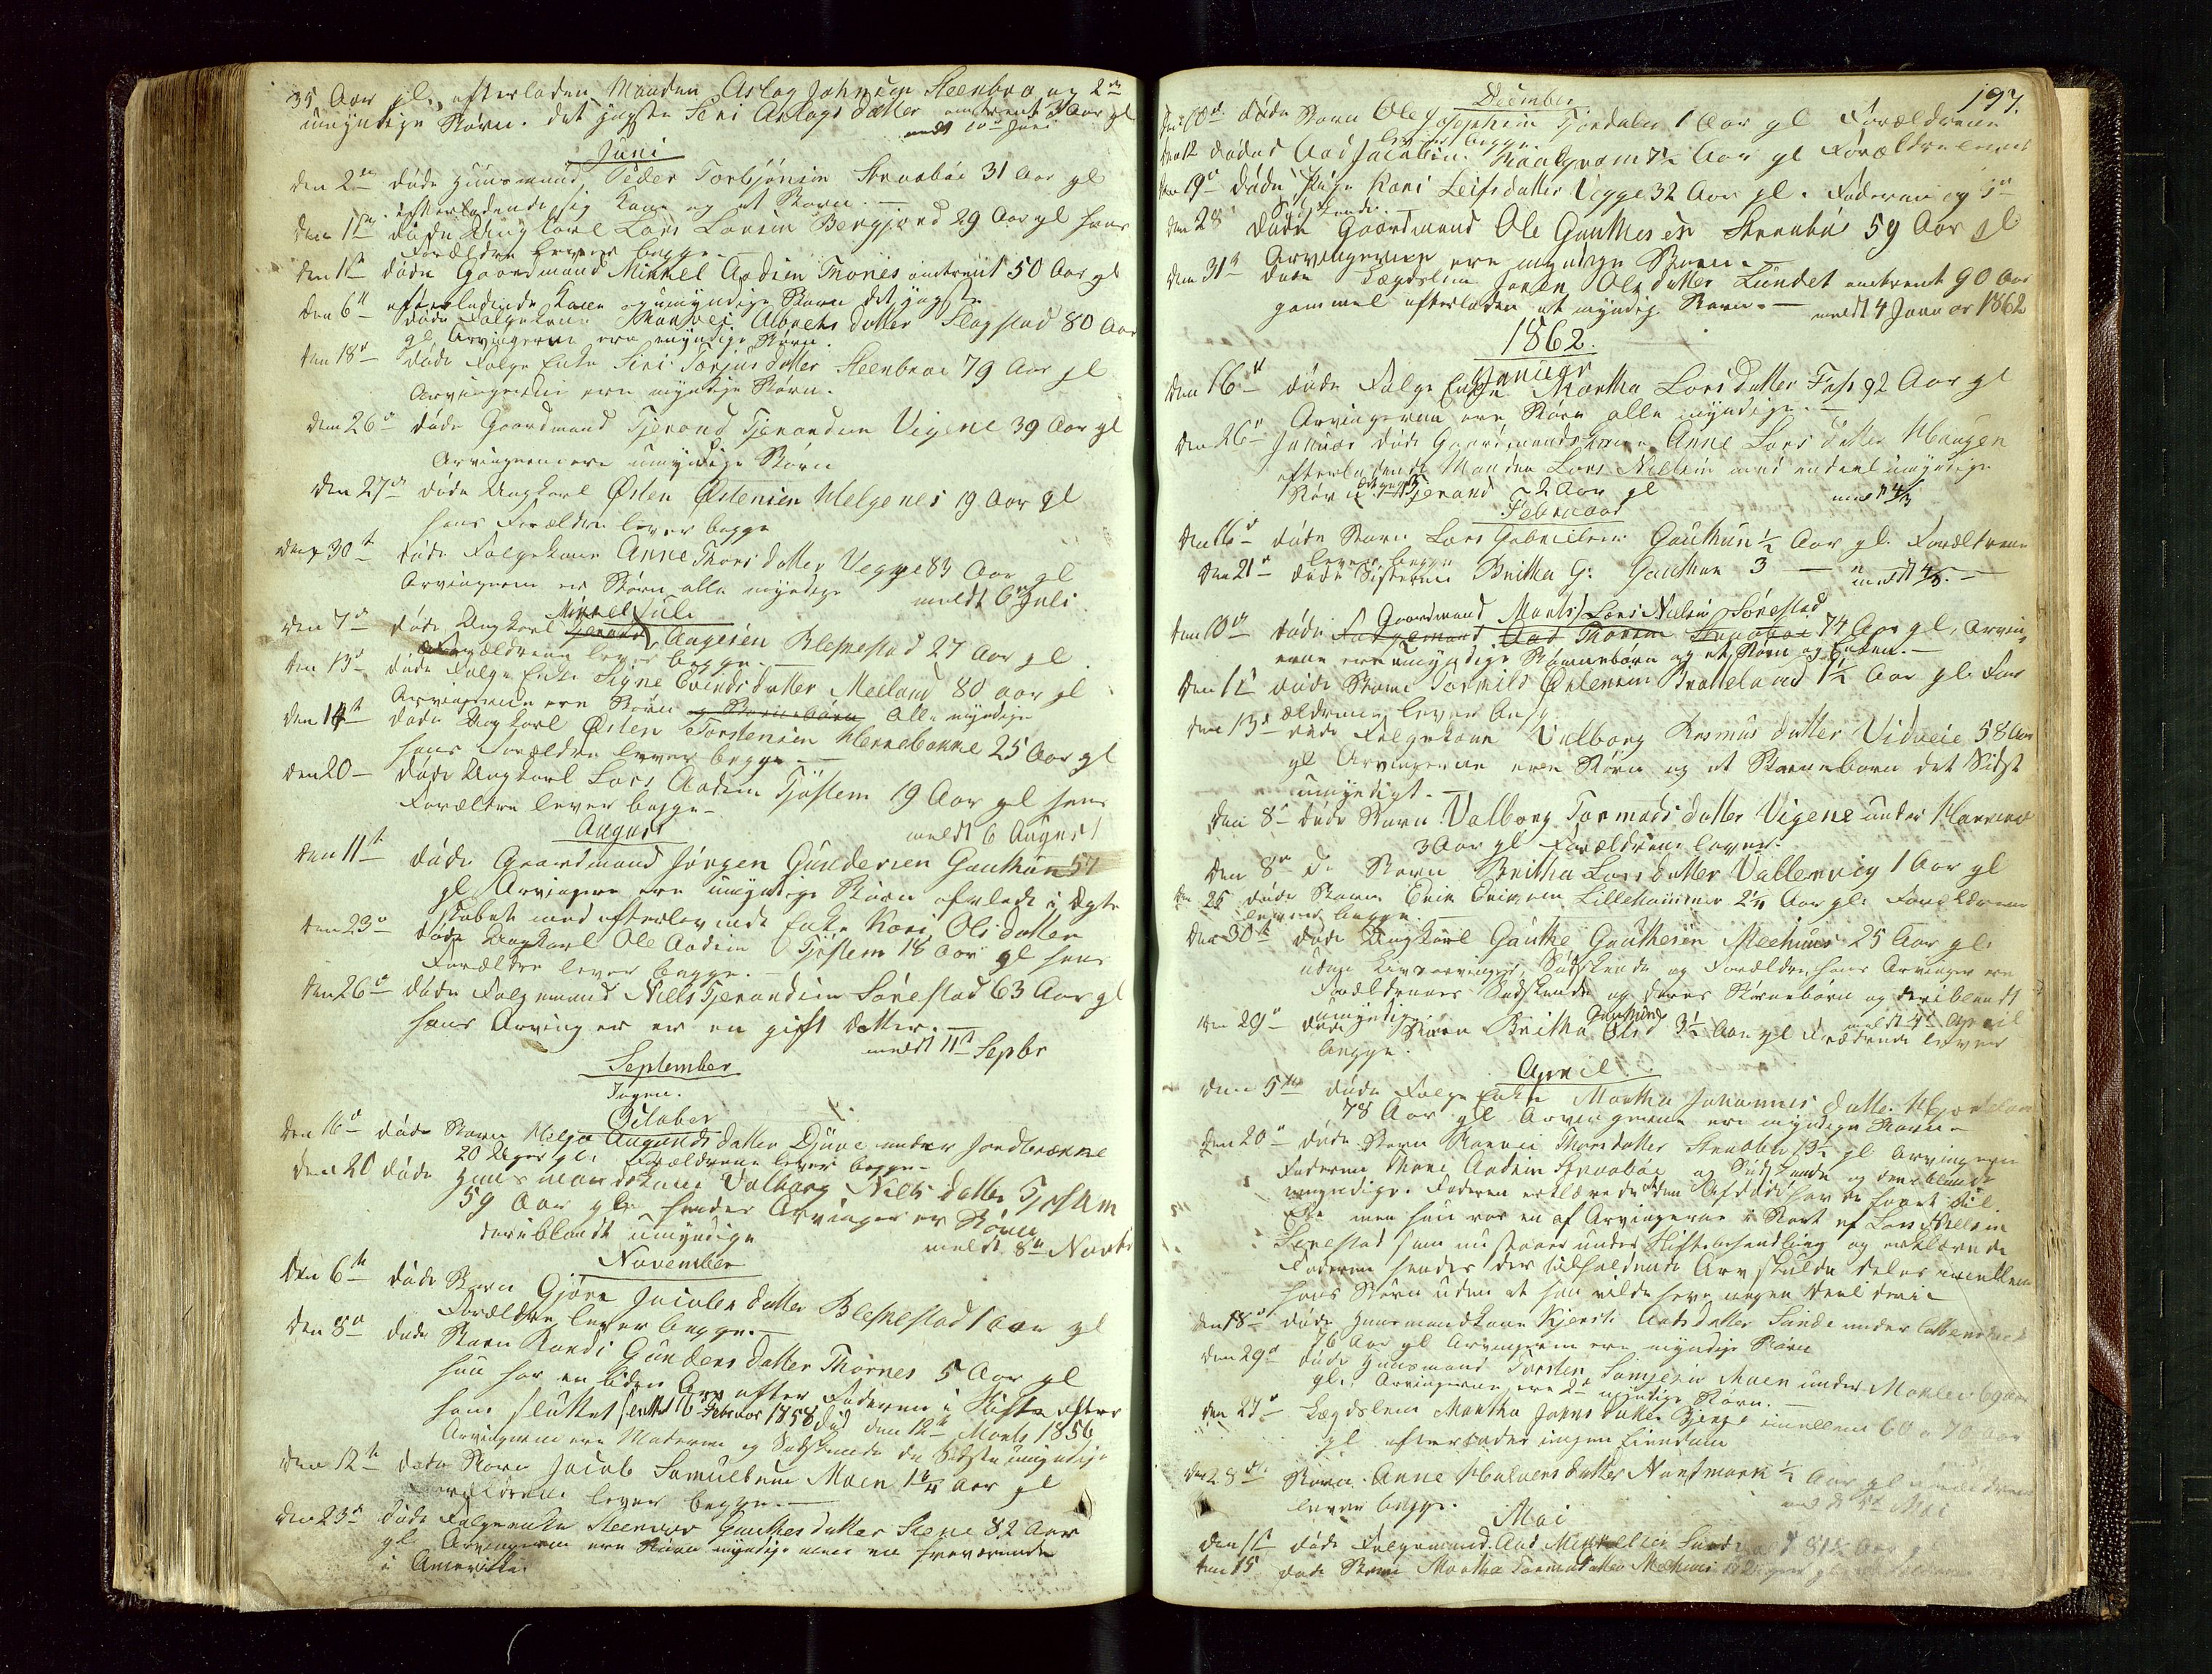 35 Aar gl. efterladen Manden Aslag Johnsen Steenbroe og 2de
umyndige Børn. det yngste Siri Aslags datter omtrent 3 Aar gl
meldt 10de Juni
Juni
den 2den døde Huusmand Peder Torbjönsen Straabøe 31 Aar gl
efterladende sig Kone og et Barn.
den 1ste døde Ungkarl Lars Larsen Bergjord 29 Aar gl hans
Forældre lever begge.
den 1ste døde Gaardmand Mikkel Aadsen Thornes omtrent 50 Aar gl
efterladende Kone og umyndige Børn det yngste
den 6te døde Folgekone Albrets datter Slagstad 80 Aar
gl Arvingerne ere myndige Børn.
den 18de døde Folge Enke Siri Torjus datter Steenbroe 79 Aar gl
Arvingerne ere myndige Børn.
den 26de døde Gaardmand Tjerand Tjerandsen Vigene 39 Aar gl
Arvingerne ere umyndige Børn
den 27de døde Ungkarl Østen Østensen Helgenes 19 Aar gl
hans Forældre lever begge
den 30te døde Folgekone Anne Thors datter Vegge 83 Aar gl
Arvingerne er Børn alle myndige
meldt 6te Juli
Juli
den 7de døde Ungkarl Mikkel Aagesen Bleskestad 27 Aar gl
Forældrene lever begge.
den 13de døde Folge Enke Signe Eivinds datter Meiland 80 aar gl
Arvingerne ere Børn og Børnebørn alle myndige
den 14de døde Ungkarl Østen Torstensen Hennebakke 25 Aar gl
hans Forældre lever begge.
den 20 døde Ungkarl Lars Aadsen Tjöstem 19 Aar gl hans
Forældre lever begge
meldt 6 August
August
den 11te døde Gaardmand Jörgen Gundersen Gauthun 57
gl Arvingerne ere umyndige Børn avlede i Ægte
skabet med efterlevende Enke Kari Ols datter
den 23de døde Ungkarl Ole Aadsen Tjöstem 18 Aar gl hans
Forældre lever begge.
den 26de døde Folgemand Niels Tjerandsen Sörestad 63 Aar gl
hans Arving er er en gift datter.
meldt 11te Septbr
September
Ingen.
October
den 16de døde Barn Helga Aamunds datter Djuve under Jordbrække
20 Uger gl. Forældrene lever begge
den 20 døde Huusmandskone Valborg Niels datter Tjostem
59 Aar gl. hendes Arvinger er Børn
deriblandt umyndige
meldt 8de Novbr
November
den 6te døde Barn Gjöre Jacobs datter Bleskestad 1 Aar gl
Forældre lever begge.
den 8de døde Barn Randi Gunders datter Thornes 5 Aar gl
hun har en liden Arv efter Faderen i Skifte efter
ham sluttet 16 Februar 1858 død den 12te Marts 1856
Arvingerne ere Moderen og Sødskende de Sidste umyndige
den 12te døde Barn Jacob Samuelsen Moen 1¼ Aar gl
Forældrene lever begge.
den 23de døde Folgeenke Steenvor Gauthes datter Stene 82 Aar
gl Arvingerne ere Børn myndige men en fraværende
i Amerika
197.
December
den 10de døde Barn Ole Josephsen Fjordalen 1 Aar gl Forældrene
lever begge
den 12 døde Aad Jacobsen Kaalgram 7½ Aar gl Forældre lever
den 19de døde Pige Kari Leifs datter Vegge 32 Aar gl. Faderen og
Sødskende.
den 28 døde Gaardmand Ole Gauthesen Straabøe 59 Aar gl
Arvingerne ere myndige Børn.
den 31te døde Lægdslem Joren Ols datter Lundet omtrent 90 Aar
gammel efterladen et myndig Barn.
meldt 4 Januar 1862
1862.
Januar
den 16de døde Folge Enke Martha Lars datter Fosse 92 Aar gl
Arvingerne ere Børn alle myndige.
den 26de Januar døde Gaardmandskone Anne Lars datter Haugen
efterladende Manden Lars Nielsen med endeel umyndige
Børn yngste Tjerand 2 Aar gl
meldt 4/3
Februar
den 16de døde Barn Lars Gabrielsen Gauthun ½ Aar gl. Forældrene
lever begge
den 21de døde Søsteren Britha G: Gauthun 3 —
meldt 4/3.
Marts
den 10de døde Gaardmand Lars Nielsen Sörestad 74 Aar gl, Arving
erne ere myndige Børnebørn og et Barn og Enken.
den 12 døde Barn Tormild Østensen Bratteland 1½ Aar gl. For
ældrene lever begge
den 13de døde Folgekone Valborg Rasmus datter Vidveie 58 Aar
gl Arvingerne ere Børn og et Barnebarn det Sidst
umyndigt.
den 8de døde Barn Valborg Tormods datter Vigene under
3 Aar gl Forældrene lever.
den 8de do Barn Britha Lars datter Vallervig 1 Aar gl
den 25 døde Barn Erik Eriksen Lillehammer 2¼ Aar gl. Forældrene
lever begge.
den 30te døde Ungkarl Gauthe Gauthesen Meehuus 25 Aar gl.
uden Livsarvinger, Sødskende og Forældre, hans Arvinger ere
Forældrenes Sødskende og deres Børnebørn og deriblandt
umyndige.
meldt 4de April
den 29de døde Barn Britha Olsd Gauthun 3½ Aar gl Forældrene lever
begge.
April
den 5te døde Folge Enke Martha Johannes datter
78 Aar gl Arvingerne ere myndige Børn
den 20de døde Barn Rannei Thors datter Straabøe 13½ gl Arvingerne
Faderen Thore Aadsen Straabøe og Sødskende og deriblandt
umyndige. Faderen erklærede at den Afdøde har en
Eie men hun var en af Arvingerne i Boet ef Lars Nielsen
Sörestad som nu staaer under Skiftebehandling og erklærede
Faderen hendes der tilfaldende Arv skulde deles imellem
hans Børn uden at han vilde have nogen Deel deri
den 18de døde Huusmandskone Kjersti Aads datter Sande under
76 Aar gl Arvingerne ere myndige Børn
den 29de døde Huusmand Torsten Samsonsen Moen under Mokleiv 69 Aar
gl. Arvingerne ere 2de myndige Børn.
den 27de Lægdslem Martha Johns datter imellem 60 a 70 Aar
gl efterlader ingen Eiendom
den 28de Barn Anne Halvors datter Nordmark ½ Aar gl Forældrene
lever begge.
meldt 5te Mai
Mai
den 1ste døde Folgemand Aad Mikkelsen 81½ Aar gl
den 15 døde Barn Martha Tormods datter